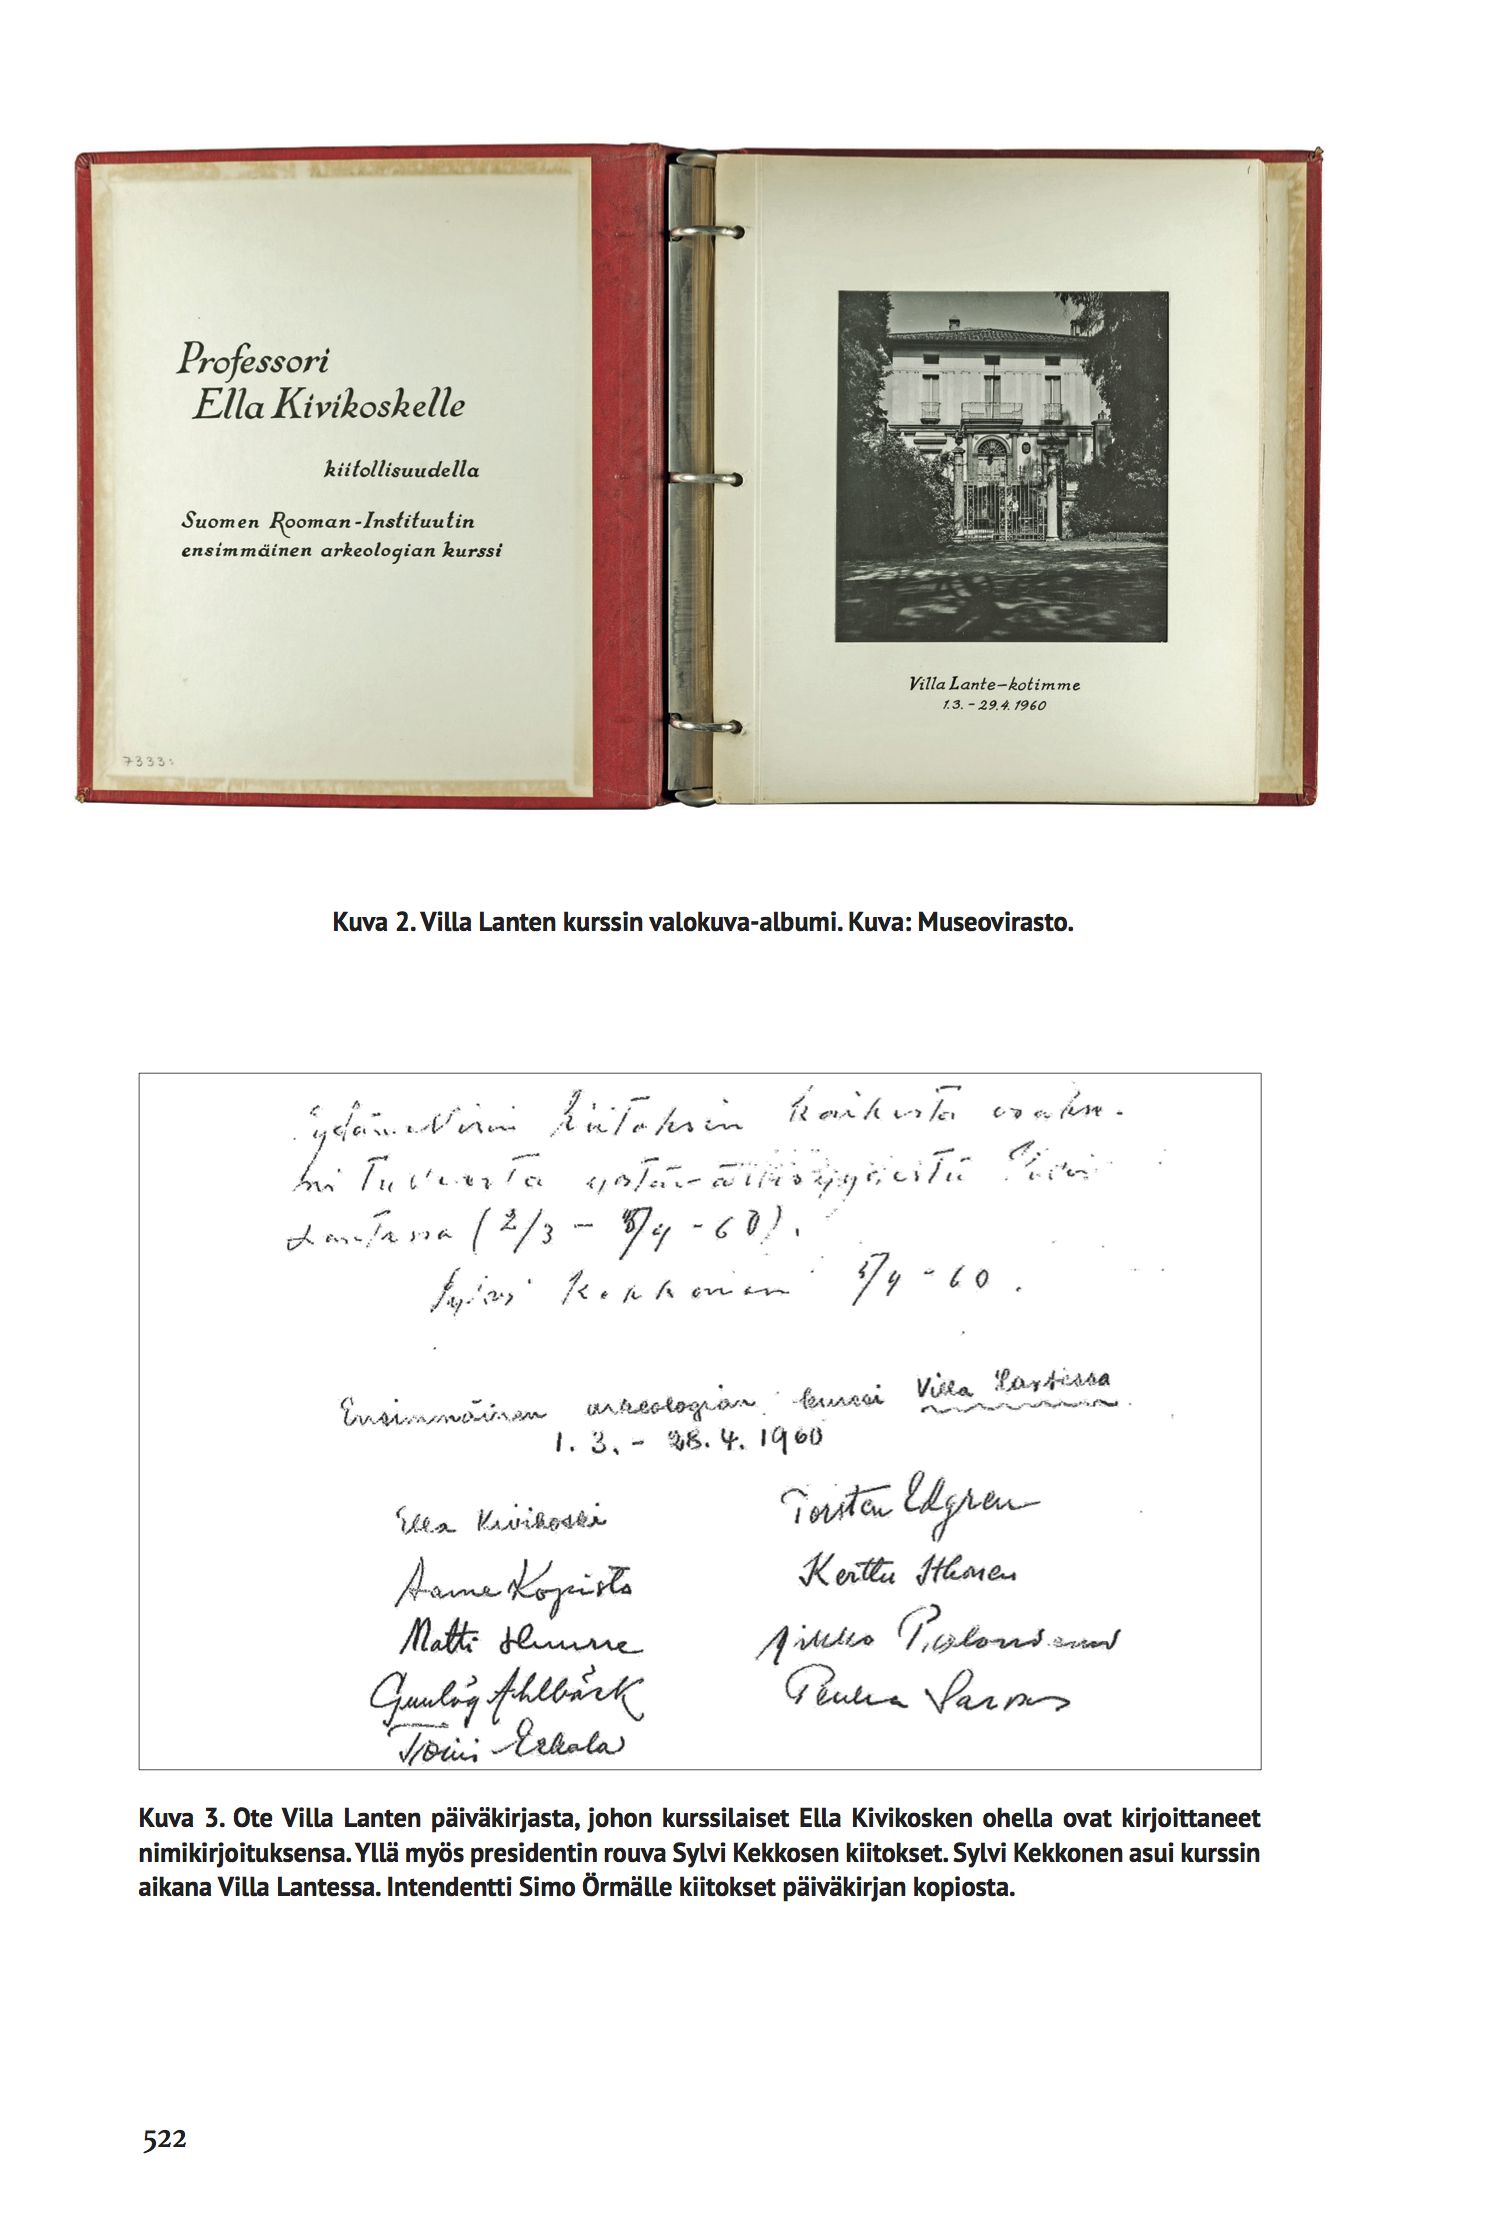 Professori
Ella Kivikoskelle
kiitollisuudella
Suomen Rooman-Instituutin
ensimmäinen arkeologian kurssi
7333:
1
Villa Lante-kotimme
1.3. - 29.4. 1960
Kuva 2. Villa Lanten kurssin valokuva-albumi. Kuva: Museovirasto.
Sydämellisin kiitoksin kaikesta osakse-
ni tulleesta ystävällisyydestä Villa
Lantessa (2/3 - 5/4 - 60).
Sylvi Kekkonen 5/4 - 60.
Ensimmäinen arkeologian kurssi Villa Lantessa
1.3. - 28.4. 1960
Ella Kivikoski
Torsten Edgren
Aarne Kopisto
Kerttu Itkonen
Matti Huurre
Pirkko
Gunlög Ahlbäck
Pekka Sarvas
Toini Erkola
Kuva 3. Ote Villa Lanten päiväkirjasta, johon kurssilaiset Ella Kivikosken ohella ovat kirjoittaneet
nimikirjoituksensa. Yllä myös presidentin rouva Sylvi Kekkosen kiitokset. Sylvi Kekkonen asui kurssin
aikana Villa Lantessa. Intendentti Simo Örmälle kiitokset päiväkirjan kopiosta.
522